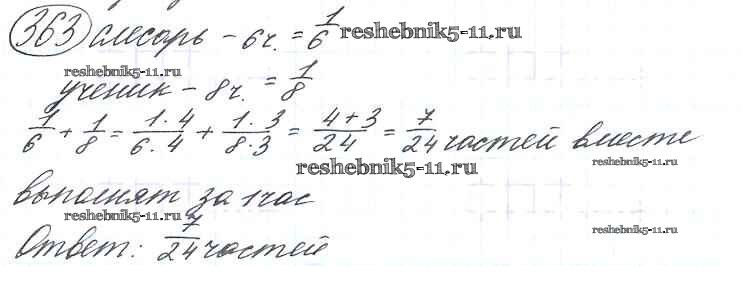 363 слесарь – 6 ч. = 1/6 reshebnik5-11.ru
reshebnik5-11.ru
ученик – 8 ч. = 1/8
1/6 + 1/8 = 1·4/6·4 + 1·3/8·3 = 4+3/24 = 7/24 частей вместе
reshebnik5-11.ru reshebnik5-11.ru
выполнят за 1 час
reshebnik5-11.ru reshebnik5-11.ru
Ответ: 7/24 частей